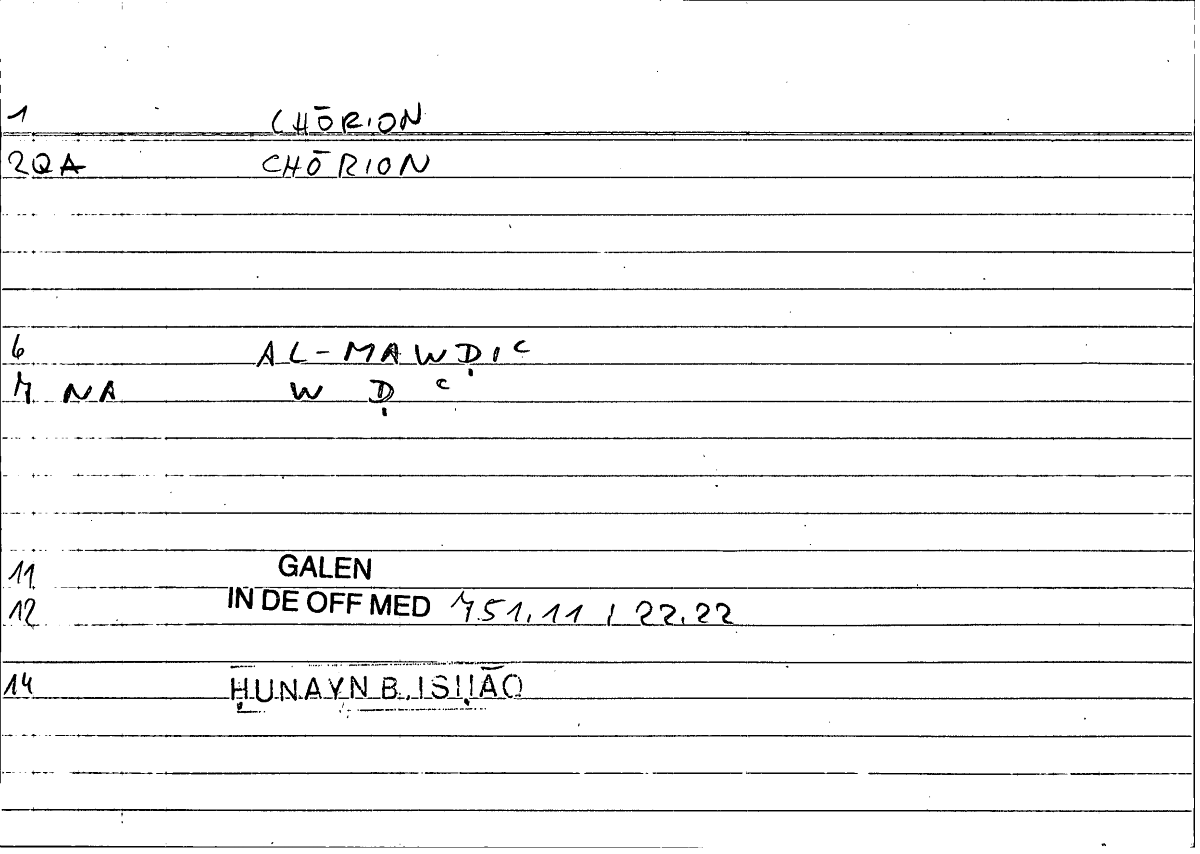 1 CHŌRION
2QA CHŌRION
6 AL-MAWḌIʿ
7 NA W Ḍ ʿ
11 GALEN
12 IN DE OFF MED 751,11 / 22,22
14 ḤUNAYN B. ISḤĀQ